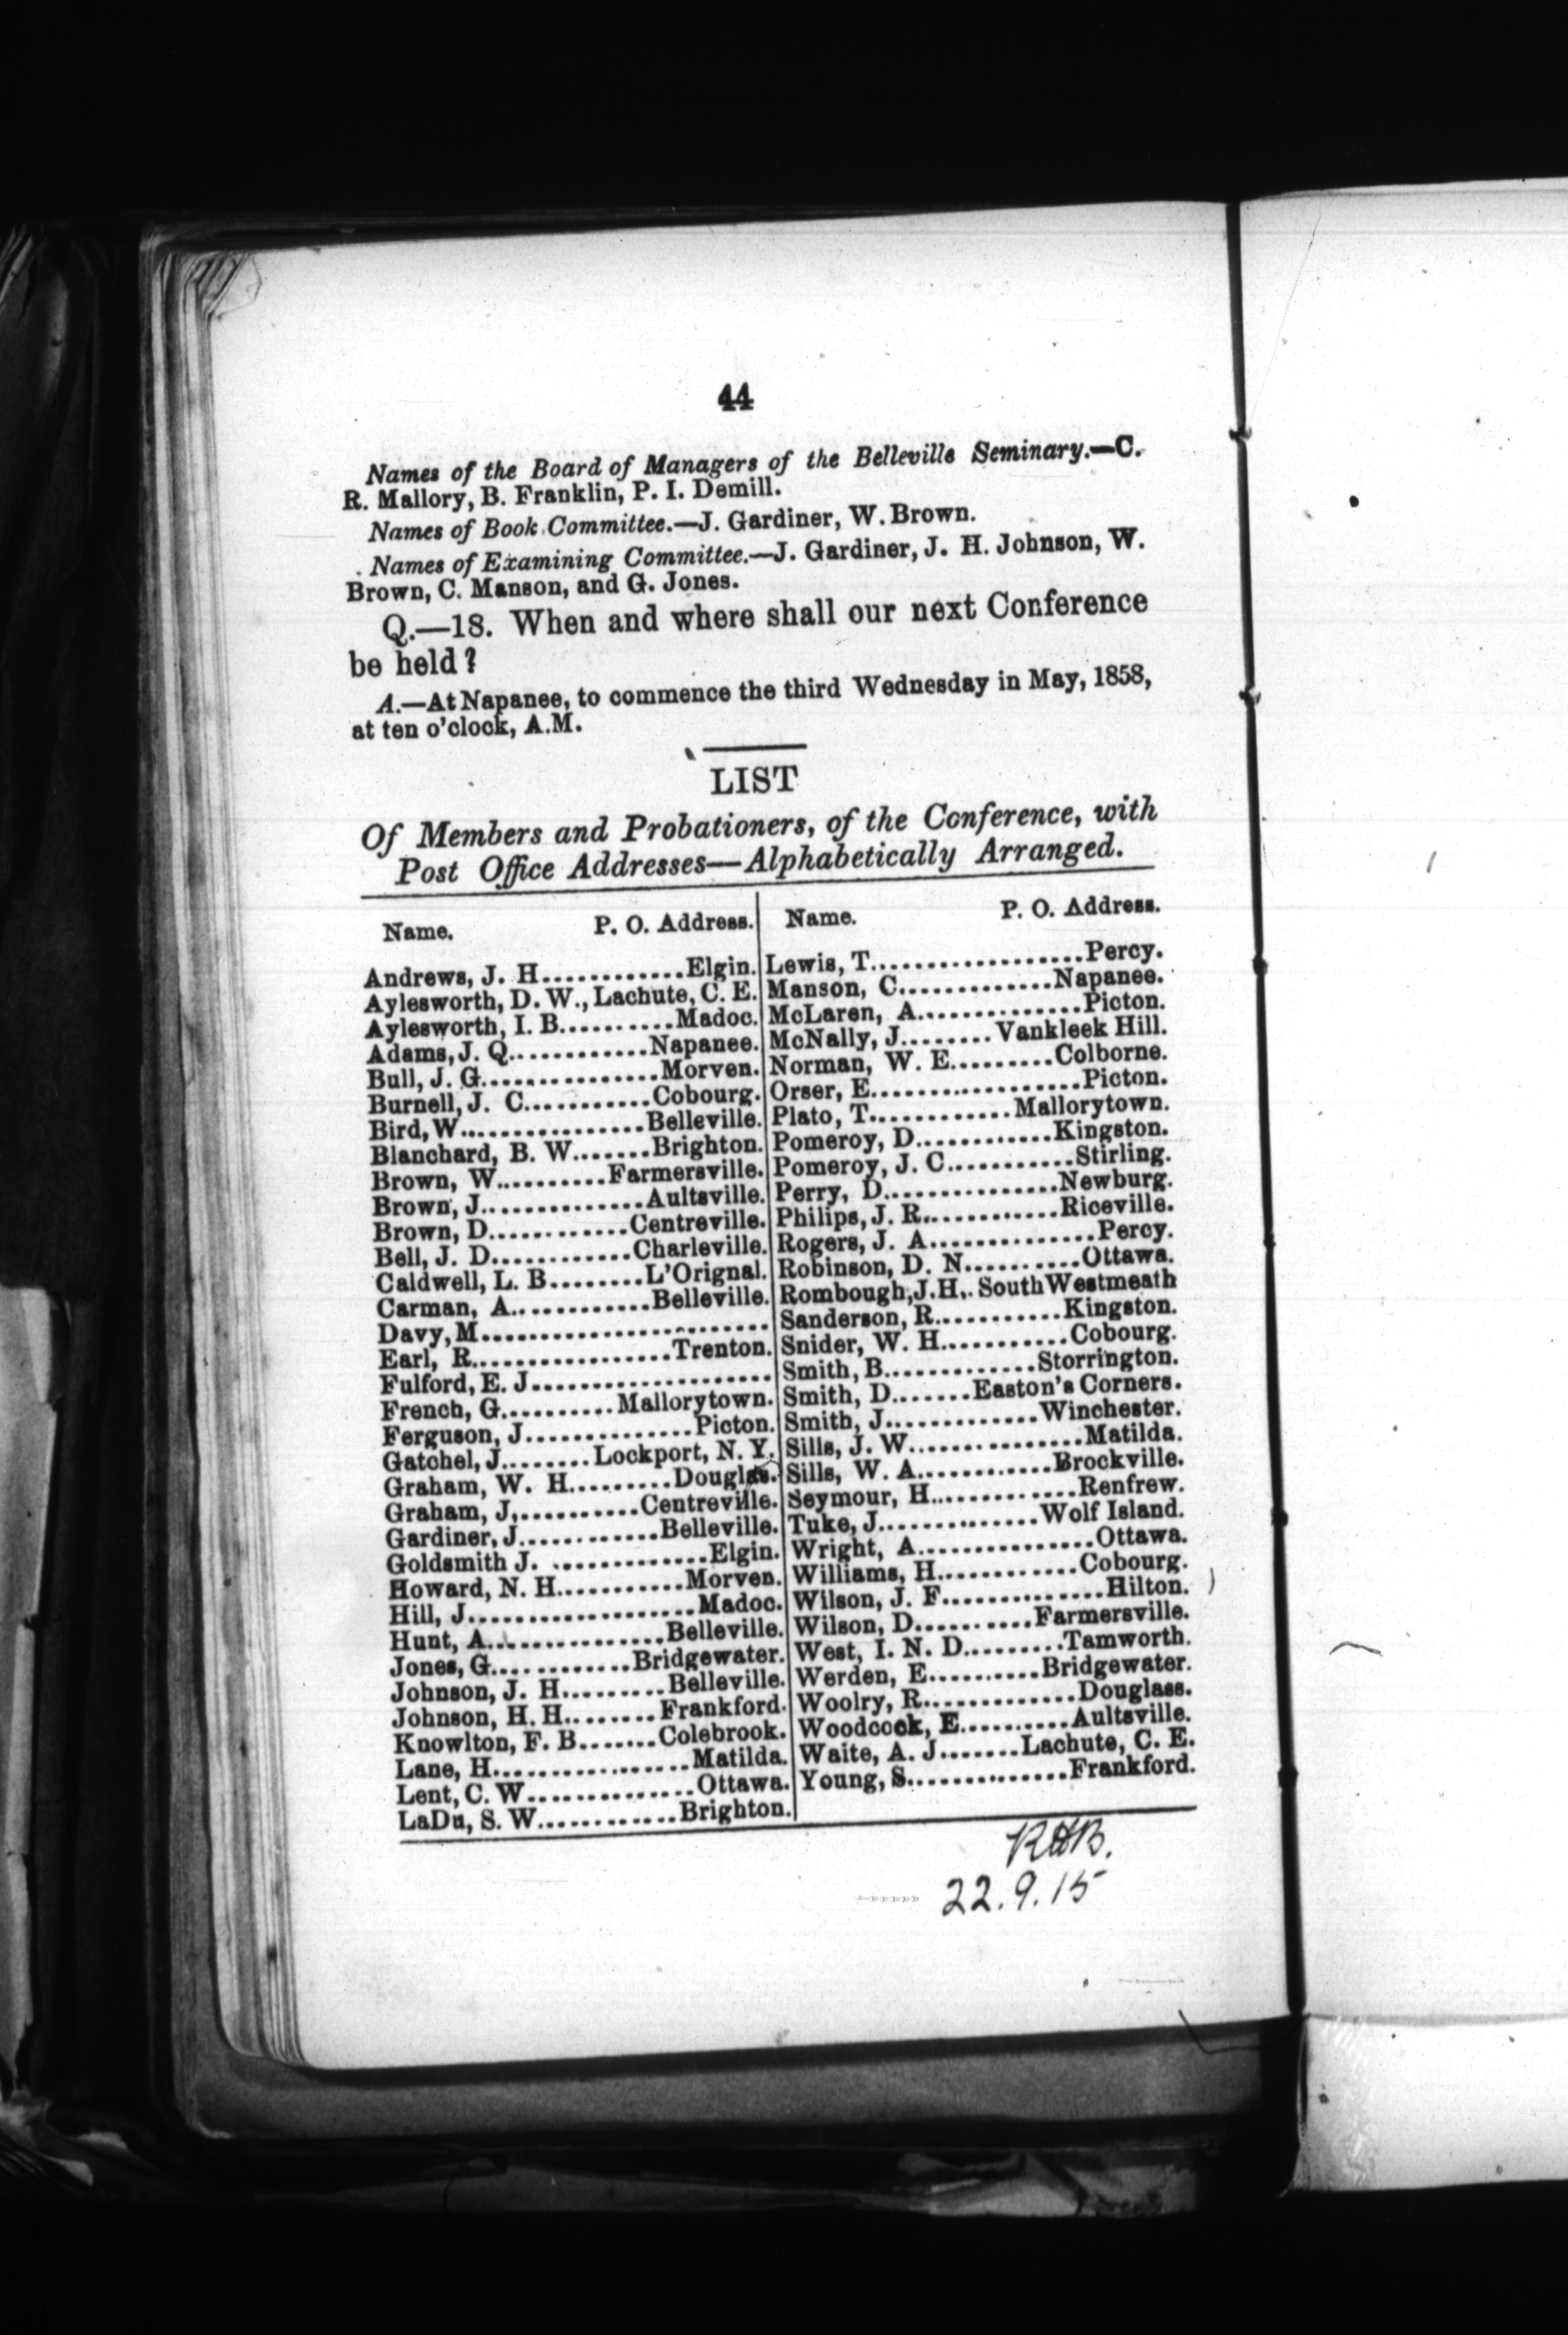 44
Names of the Board of Managers of the Belleville Seminary.—C.
R. Mallory, B. Franklin, P. I. Demill.
Names of Book Committee.—J. Gardiner, W. Brown.
Names of Examining Committee.—J. Gardiner, J. H. Johnson, W.
Brown, C. Manson, and G. Jones.
Q.—18. When and where shall our next Conference
be held?
A.—At Napanee, to commence the third Wednesday in May, 1858,
at ten o'clock, A.M.
LIST
Of Members and Probationers, of the Conference, with
Post Office Addresses—Alphabetically Arranged.
Name. P. O. Address.
Andrews, J. H............Elgin.
Aylesworth, D. W., Lachute, C. E.
Aylesworth, I. B..........Madoc.
Adams, J. Q............Napanee.
Bull, J. G...............Morven.
Burnell, J. C...........Cobourg.
Bird, W................Belleville.
Blanchard, B. W.......Brighton.
Brown, W..........Farmersville.
Brown, J..............Aultsville.
Brown, D............Centreville.
Bell, J. D............Charleville.
Caldwell, L. B........L'Orignal.
Carman, A............Belleville.
Davy, M.........................
Earl, R.................Trenton.
Fulford, E. J.....................
French, G..........Mallorytown.
Ferguson, J..............Picton.
Gatchel, J........Lockport, N. Y.
Graham, W. H.........Douglas.
Graham, J,..........Centreville.
Gardiner, J............Belleville.
Goldsmith J. .............Elgin.
Howard, N. H...........Morven.
Hill, J...................Madoc.
Hunt, A...............Belleville.
Jones, G............Bridgewater.
Johnson, J. H.........Belleville.
Johnson, H. H........Frankford.
Knowlton, F. B.......Colebrook.
Lane, H.................Matilda.
Lent, C. W..............Ottawa.
LaDu, S. W............Brighton.
Name. P. O. Address.
Lewis, T...................Percy.
Manson, C.............Napanee.
McLaren, A..............Picton.
McNally, J........Vankleek Hill.
Norman, W. E.........Colborne.
Orser, E..................Picton.
Plato, T............Mallorytown.
Pomeroy, D............Kingston.
Pomeroy, J. C...........Stirling.
Perry, D...............Newburg.
Philips, J. R............Riceville.
Rogers, J. A..............Percy.
Robinson, D. N..........Ottawa.
Rombough, J. H,. South Westmeath
Sanderson, R...........Kingston.
Snider, W. H...........Cobourg.
Smith, B.............Storrington.
Smith, D.......Easton's Corners.
Smith, J.............Winchester.
Sills, J. W...............Matilda.
Sills, W. A............Brockville.
Seymour, H.............Renfrew.
Tuke, J..............Wolf Island.
Wright, A...............Ottawa.
Williams, H............Cobourg.
Wilson, J. F..............Hilton.
Wilson, D..........Farmersville.
West, I. N. D.........Tamworth.
Werden, E..........Bridgewater.
Woolry, R.............Douglass.
Woodcock, E..........Aultsville.
Waite, A. J.......Lachute, C. E.
Young, S..............Frankford.
22.9.15